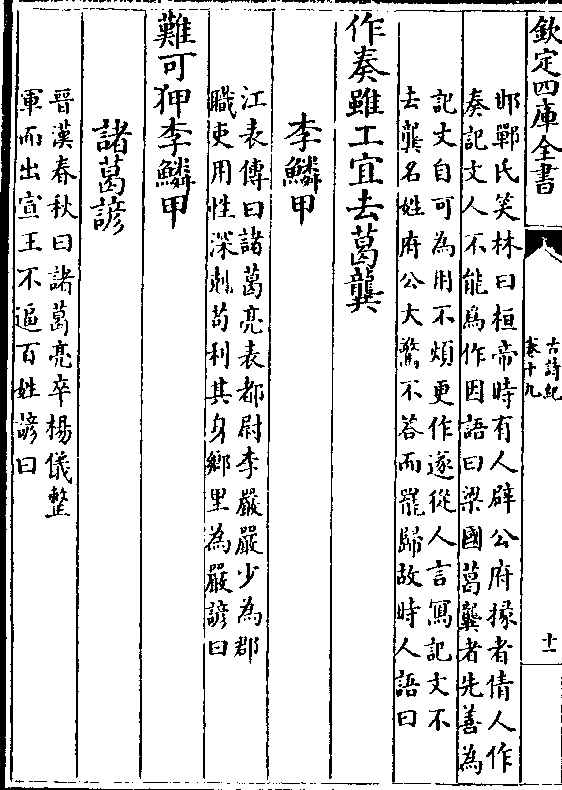 欽定四庫全書
古詩紀
卷十九
十一
邯鄲氏笑林曰桓帝時有人辟公府掾者倩人作
奏記文人不能為作因語曰梁國葛龔者先善為
記文自可為用不煩更作遂從人言寫記文不
去龔名姓府公大驚不答而罷歸故時人語曰
作奏雖工宜去葛龔
李鱗甲
江表傳曰諸葛亮表都尉李嚴嚴少為郡
職吏用性深剋苟利其身鄉里為嚴諺曰
難可狎李鱗甲
諸葛諺
晉漢春秋曰諸葛亮卒楊儀整
軍而出宣王不逼百姓諺曰